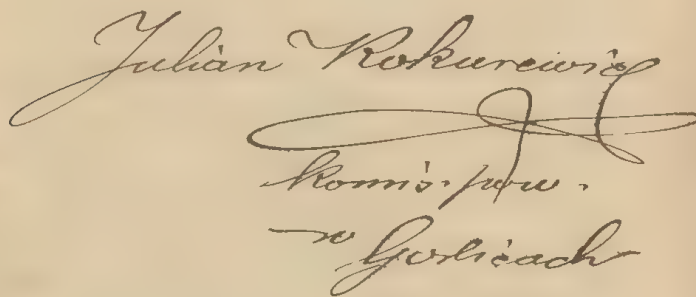 Julian Kokurewicz
komis. pow.
w
Gorlicach